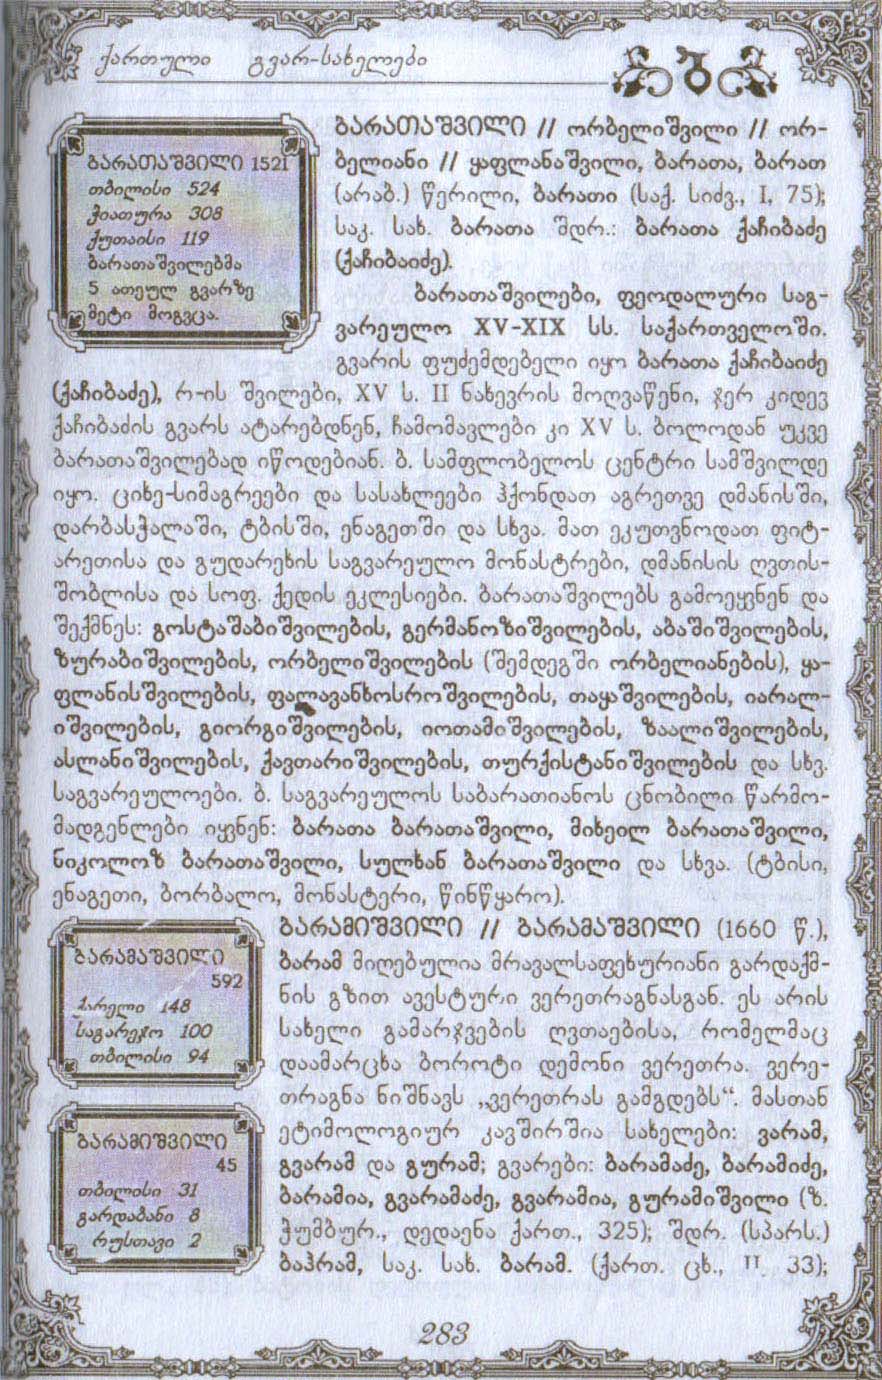 ქართული გვარ-სახელები
ბარათაშვილი 1521
თბილისი 524
ჭიათურა 308
ქუთაისი 119
ბარათაშვილებმა
5 ათეულ გვარზე
მეტი მოგვცა.
ბარათაშვილი // ორბელიშვილი // ორ-
ბელიანი // ყაფლანაშვილი, ბარათა, ბარათ
(არაბ.) წერილი, ბარათი (საქ. სიძვ., I, 75);
საკ. სახ. ბარათა შდრ.: ბარათა ქაჩიბაძე
(ქაჩიბაიძე).
ბარათაშვილები, ფეოდალური საგ-
ვარეულო XV-XIX სს. საქართველოში.
გვარის ფუძემდებელი იყო ბარათა ქაჩიბაიძე
(ქაჩიბაძე), რ-ის შვილები, XV ს. II ნახევრის მოღვაწენი, ჯერ კიდევ
ქაჩიბაძის გვარს ატარებდნენ, ჩამომავლები კი XV ს. ბოლოდან უკვე
ბარათაშვილებად იწოდებიან. ბ. სამფლობელოს ცენტრი სამშვილდე
იყო. ციხე-სიმაგრეები და სასახლეები ჰქონდათ აგრეთვე დმანისში,
დარბასჭალაში, ტბისში, ენაგეთში და სხვა. მათ ეკუთვნოდათ ფიტ-
არეთისა და გუდარეხის საგვარეულო მონასტრები, დმანისის ღვთის-
შობლისა და სოფ. ქედის ეკლესიები. ბარათაშვილებს გამოეყვნენ და
შექმნეს: გოსტაშაბიშვილების, გერმანოზიშვილების, აბაშიშვილების,
ზურაბიშვილების, ორბელიშვილების (შემდეგში ორბელიანების), ყა-
ფლანისშვილების, ფალავანხოსროშვილების, თაყაშვილების, იარალ-
იშვილების, გიორგიშვილების, იოთამიშვილების, ზაალიშვილების,
ასლანიშვილების, ქავთარიშვილების, თურქისტანიშვილების და სხვ.
საგვარეულოები. ბ. საგვარეულოს საბარათიანოს ცნობილი წარმო-
მადგენლები იყვნენ: ბარათა ბარათაშვილი, მიხეილ ბარათაშვილი,
ნიკოლოზ ბარათაშვილი, სულხან ბარათაშვილი და სხვა. (ტბისი,
ენაგეთი, ბორბალო, მონასტერი, წინწყარო).
ბარამაშვილი
592
ქარელი 148
საგარეჯო 100
თბილისი 94
ბარამიშვილი
45
თბილისი 31
გარდაბანი 8
რუსთავი 2
ბარამიშვილი // ბარამაშვილი (1660 წ.),
ბარამ მიღებულია მრავალსაფეხურიანი გარდაქმ-
ნის გზით ავესტური ვერეთრაგნასგან. ეს არის
სახელი გამარჯვების ღვთაებისა, რომელმაც
დაამარცხა ბოროტი დემონი ვერეთრა. ვერე-
თრაგნა ნიშნავს „ვერეთრას გამგდებს“. მასთან
ეტიმოლოგიურ კავშირშია სახელები: ვარამ,
გვარამ და გურამ; გვარები: ბარამაძე, ბარამიძე,
ბარამია, გვარამაძე, გვარამია, გურამიშვილი (ზ.
ჭუმბურ., დედაენა ქართ., 325); შდრ. (სპარს.)
ბაჰრამ, საკ. სახ. ბარამ. (ქართ. ცხ., II, 33);
283